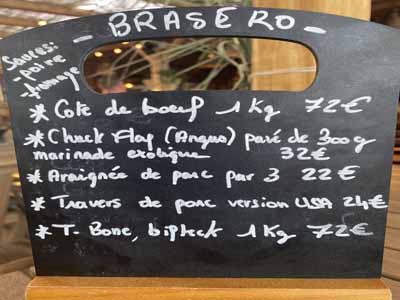 - BRASERO -
Sauces:
- poivre
- fromage
* Côte de boeuf 1 Kg 72€
* Chuck Flap (Angus) pavé de 300g
marinade exotique 32€
* Araignée de porc par 3 22€
* Travers de porc version USA 24€
* T-Bone, bifteck 1 Kg 72€